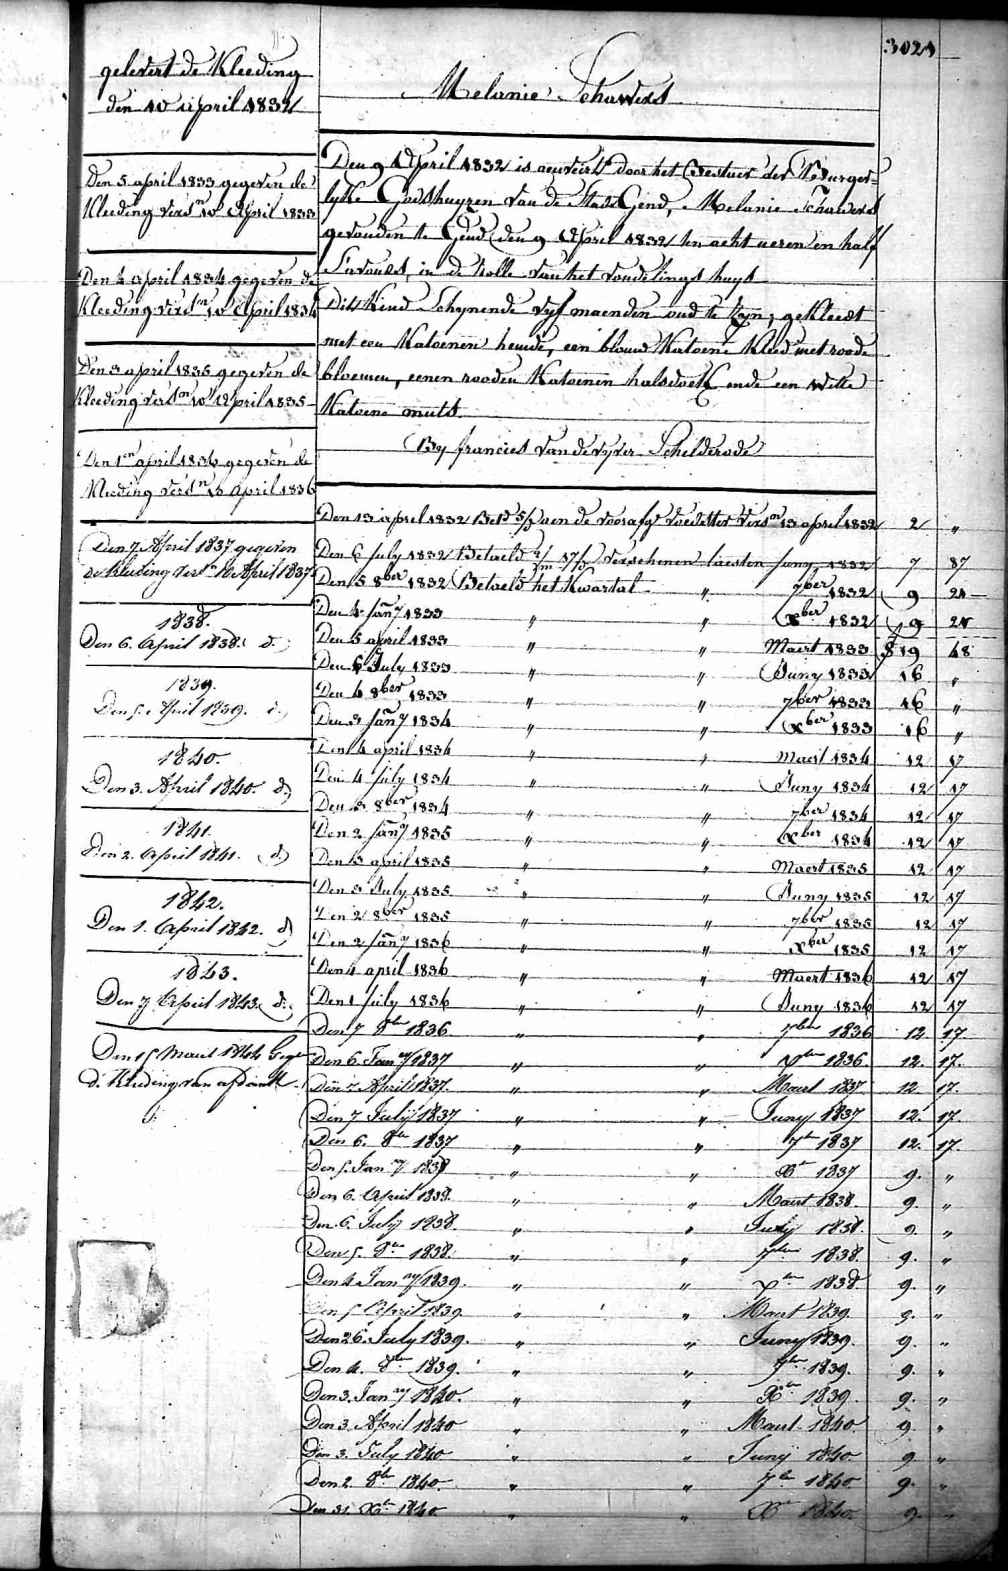 3024
gelevert de Kleeding
den 10 april 1832
Den 5 april 1833 gegeven de
Kleeding vers.n 10 April 1833
Den 4 april 1834 gegeven de
Kleeding vers.n 10 April 1834
Den 3 april 1835 gegeven de
Kleeding vers.n 10 April 1835
Den 1en april 1836 gegeven de
Kleeding vers.n 10 april 1836
Den 7 April 1837 gegeven
de Kleeding vers.n 10 April 1837
1838.
Den 6. April 1838. d.
1839.
Den 5. April 1839. d.
1840.
Den 3. April 1840. d.
1841.
Den 2. April 1841. d.
1842.
Den 1. April 1842. d.
1843.
Den 7 April 1843. d.
Den 15 Maert 1844 Gege
d. Kleeding van afdankt
Melanie Schauwers
Den 9 April 1832 is aenveirt door het Bestuer der Burger-
lyke Godshuyzen van de Stad Gend, Melanie Schauwers
gevonden te Gend den 9 April 1832 ten acht ueren en half
s'avonds, in de rolle van het vondelings huys
Dit Kind schynende vyf maenden oud te zyn, gekleedt
met een Katoenen hemde, een blouw Katoene Kleed met roode
bloemen, eenen rooden Katoenen halsdoek ende een witte
Katoene muts.
By francies van de vyver Schelderode
Den 13 april 1832 Bet.d aen de voorafg.e voedster vers.n 13 april 1832 2 "
Den 6 July 1832 Betaeld verschenen laesten Juny 1832 7 87
Den 5 8ber 1832 Betaeld het Kwartal " 7ber 1832 9 24
Den 4 Jan.y 1833 " " Xber 1832 9 24
Den 5 april 1833 " " Maert 1833 19 48
Den 5 July 1833 " " Juny 1833 16 "
Den 4 8ber 1833 " " 7ber 1833 16 "
Den 3 Jan.y 1834 " " Xber 1833 16 "
Den 4 april 1834 " " Maert 1834 12 17
Den 4 July 1834 " " Juny 1834 12 17
Den 3 8ber 1834 " " 7ber 1834 12 17
Den 2 Jan.y 1835 " " Xber 1834 12 17
Den 3 april 1835 " " Maert 1835 12 17
Den 3 July 1835 " " Juny 1835 12 17
Den 2 8ber 1835 " " 7ber 1835 12 17
Den 2 Jan.y 1836 " " Xber 1835 12 17
Den 4 april 1836 " " Maert 1836 12 17
Den 1 July 1836 " " Juny 1836 12 17
Den 7 8ber 1836 " " 7ber 1836 12. 17.
Den 6. Jan.y 1837 " " Xber 1836. 12. 17.
Den 7. April 1837. " " Maert 1837 12 17.
Den 7 July 1837 " " Juny 1837 12. 17.
Den 6. 8br 1837 " " 7br 1837 12. 17.
Den 5. Jan.y 1838 " " Xbr 1837 9. "
Den 6. April 1838. " " Maert 1838. 9. "
Den 6. July 1838. " " Juny 1838. 9. "
Den 5. 8br 1838. " " 7ber 1838. 9. "
Den 4 Jan.y 1839. " " Xber 1838. 9. "
Den 5 April 1839. " " Maert 1839. 9. "
Den 26. July 1839. " " Juny 1839. 9. "
Den 4. 8ber 1839. " " 7ber 1839. 9. "
Den 3. Jan.y 1840. " " Xbr 1839. 9. "
Den 3. April 1840 " " Maert 1840. 9. "
Den 3. July 1840 " " Juny 1840. 9. "
Den 2. 8br 1840. " " 7br 1840. 9. "
Den 31. Xbr 1840. " " Xbr 1840. 9. "